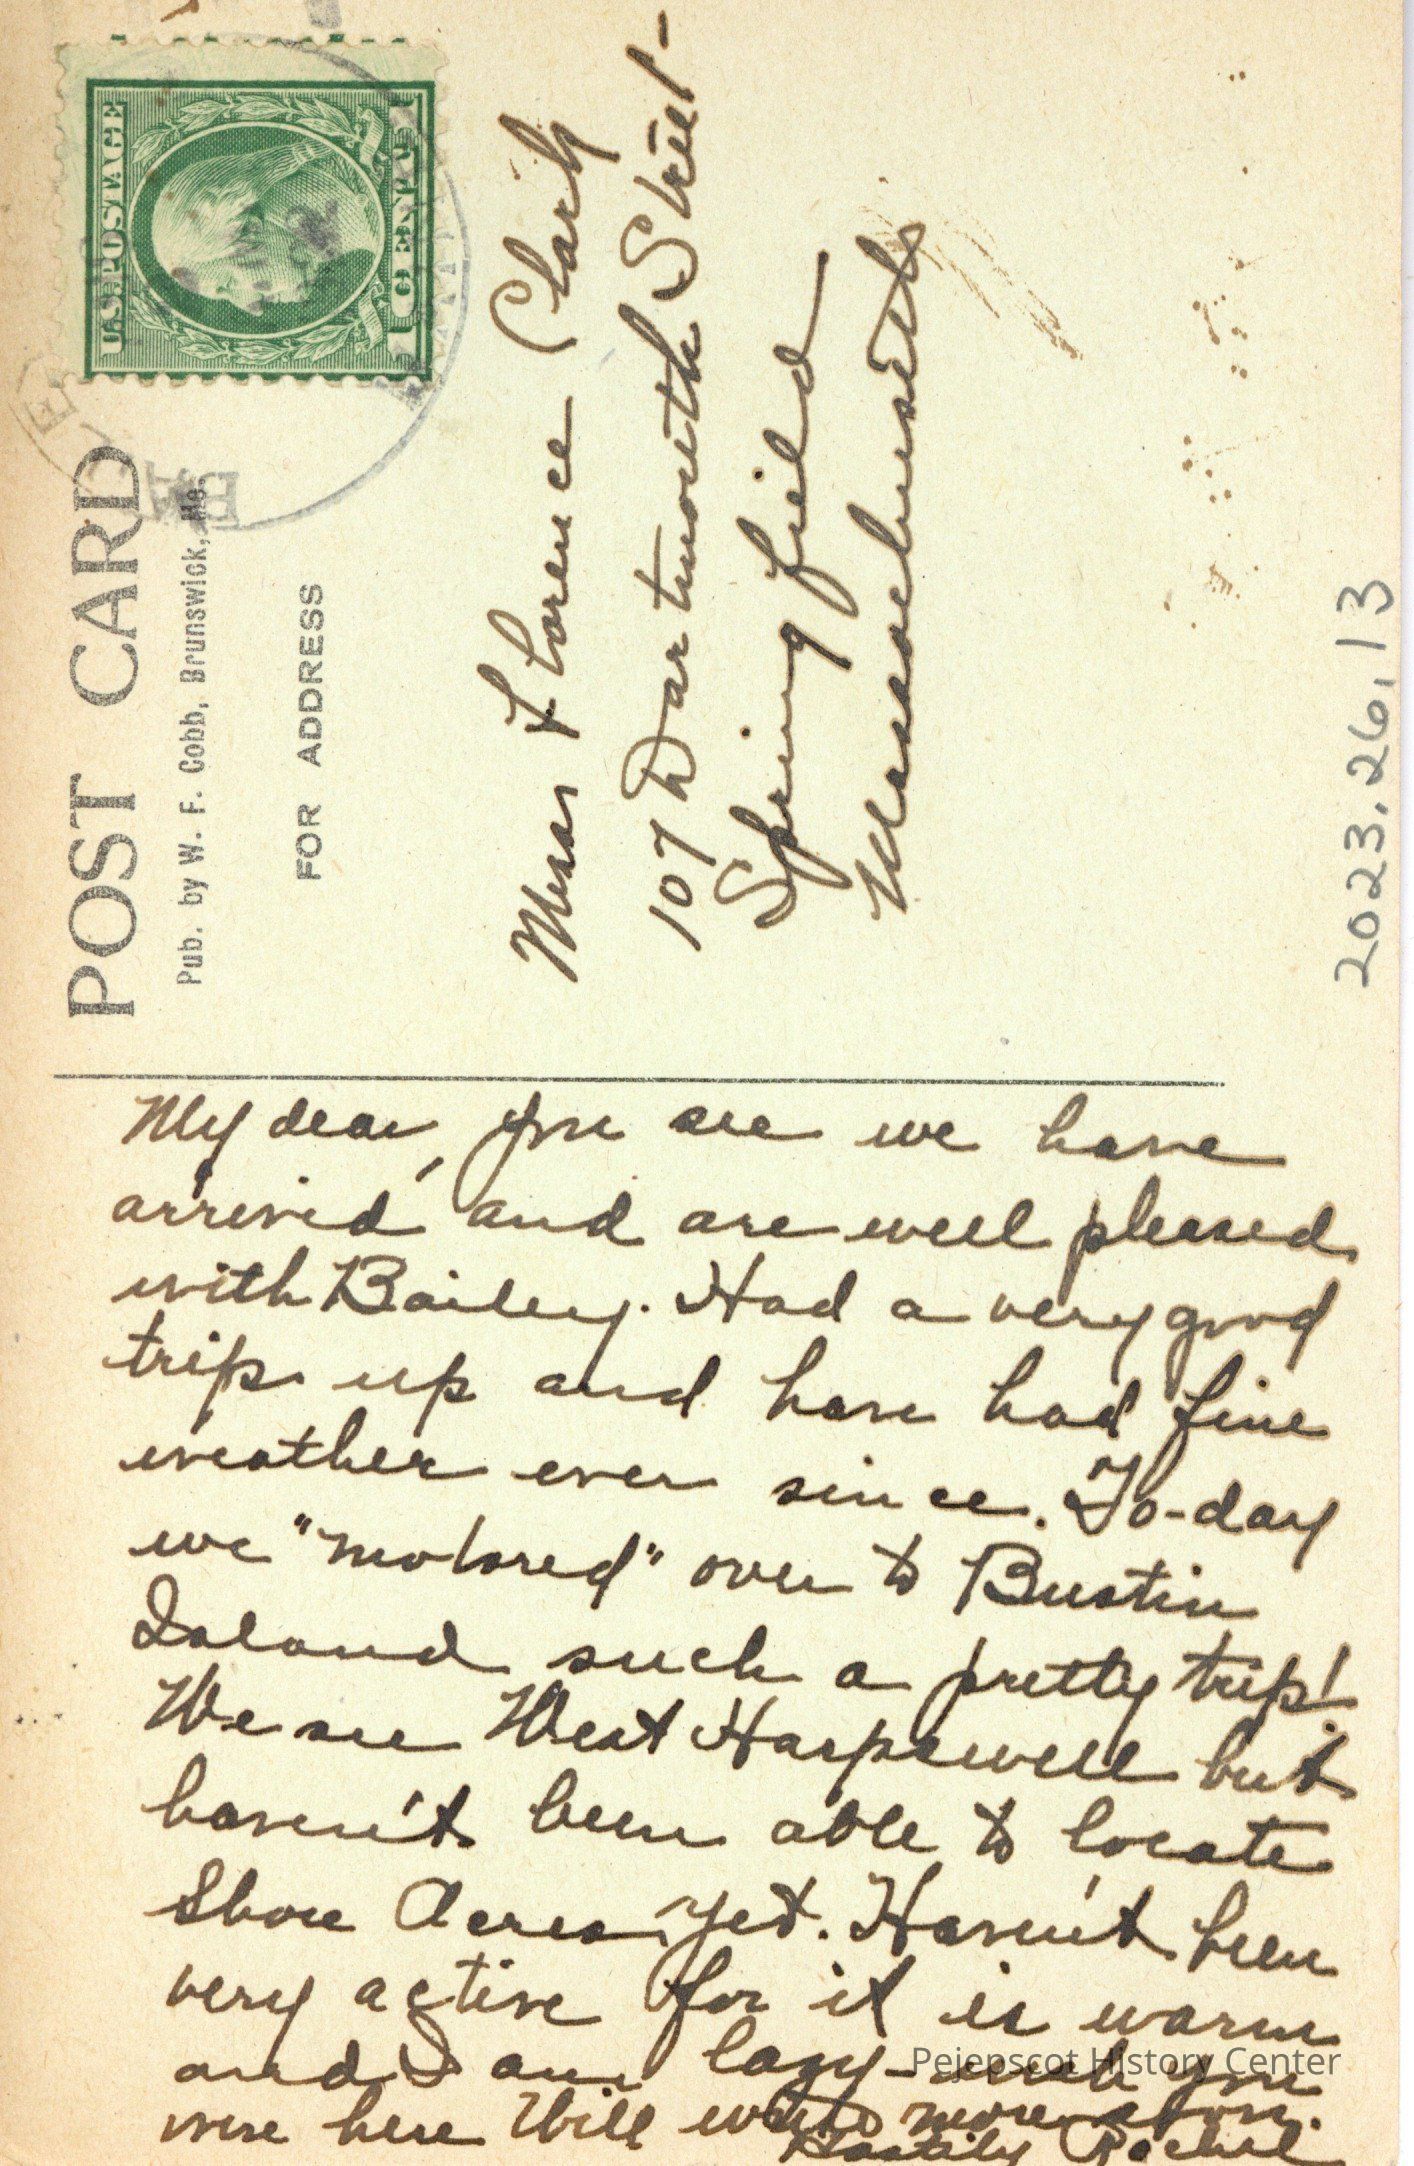 POST CARD
Pub. by W. F. Cobb, Brunswick, Me.
FOR ADDRESS
U.S. POSTAGE
1 ONE CENT 1
Miss Florence Clark
107 Dartmouth Street-
Springfield
Massachusetts
2023.26.13
My dear, you see we have
arrived and are well pleased
with Bailey. Had a very good
trip up and have had fine
weather ever since. To-day
we "motored" over to Bustin
Island such a pretty trip!
We see West Harpswell but
haven't been able to locate
Shore Acres yet. Haven't been
very active for it is warm
and I am lazy - wish you
were here Will write more soon.
Hastily Rachel
Pejepscot History Center